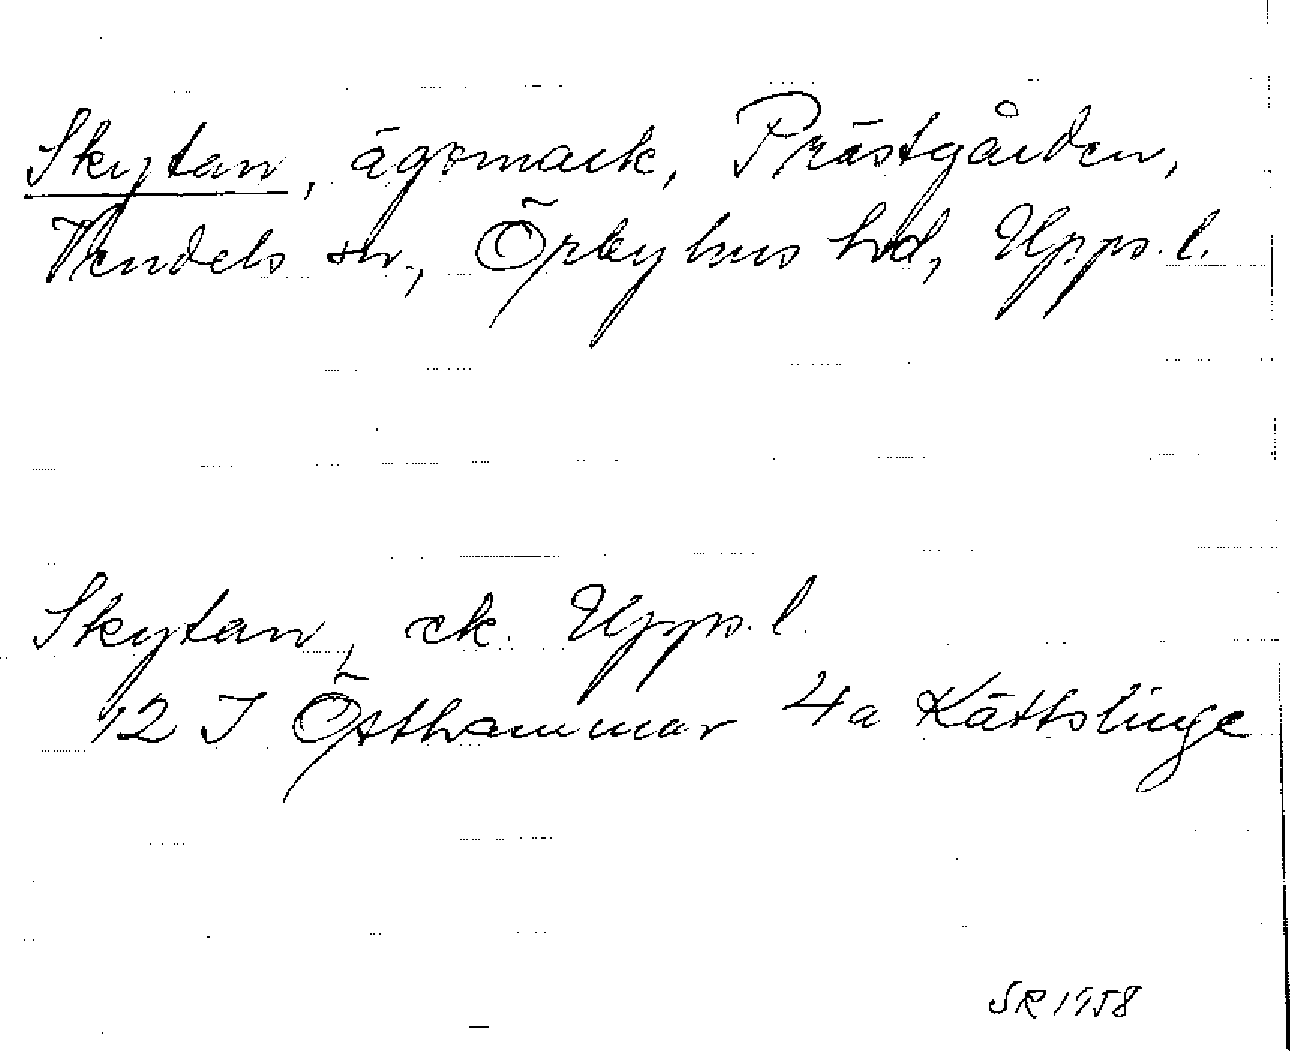 Skytan, ägomark, Prästgården,
Vendels sn, Örbyhus hd, Upps. l.
Skytan, ek. Upps. l.
12 I Östhammar 4a Kättslinge
SR 1958